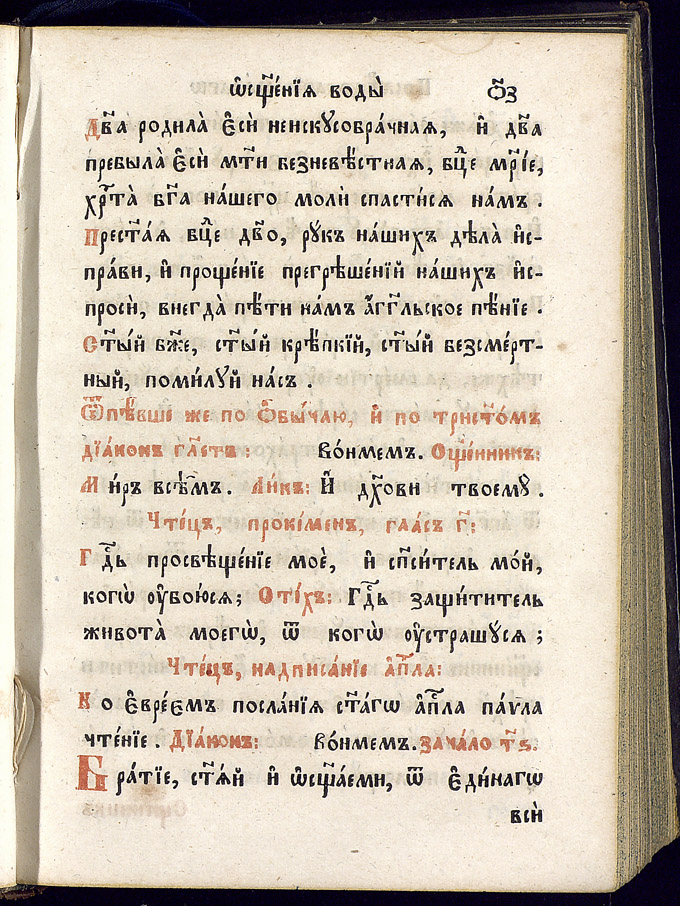 ѡ҆сщ҃е́нїѧ воды̀ ѻ҃з
Дв҃а родила̀ є҆сѝ неискусобра́чнаѧ, и҆ дв҃а
пребыла̀ є҆сѝ мт҃и безневѣ́стнаѧ, бц҃е мр҃і́е,
хрⷭ҇та̀ бг҃а на́шего молѝ спасти́сѧ на́мъ.
Прест҃а́ѧ бц҃е дв҃о, рꙋ́къ на́шихъ дѣла̀ и҆с-
пра́ви, и҆ проще́нїе прегрѣше́нїй на́шихъ и҆с-
просѝ, внегда̀ пѣ́ти на́мъ а҆́гг҃льское пѣ́нїе.
Ст҃ы́й бж҃е, ст҃ы́й крѣ́пкїй, ст҃ы́й безсме́рт-
ный, поми́лꙋй на́съ
Ѿпѣ́вше же по ѻ҆бы́чаю, и҆ по трист҃о́мъ
дїа́конъ гл҃етъ: во́нмемъ. Сщ҃е́нникъ:
Ми́ръ всѣ́мъ. Ли́къ: И҆ дх҃ови твоемꙋ̀.
Чте́цъ, проки́менъ, гла́съ г҃:
Гдⷭ҇ь просвѣще́нїе моѐ, и҆ сп҃си́тель мо́й,
когѡ̀ ᲂу҆бою́сѧ; Сті́хъ: Гдⷭ҇ь защи́титель
живота̀ моегѡ̀, ѿ когѡ̀ ᲂу҆страшꙋ́сѧ;
Чте́цъ, надписа́нїе а҆пⷭ҇ла:
Ко є҆вре́ємъ посла́нїѧ ст҃а́гѡ а҆пⷭ҇ла па́ѵла
чте́нїе. Дїа́конъ: во́нмемъ. зача́ло т҃ѕ.
Бра́тїе, ст҃ѧ́й и҆ ѡ҆сщ҃а́еми, ѿ є҆ди́нагѡ
всѝ